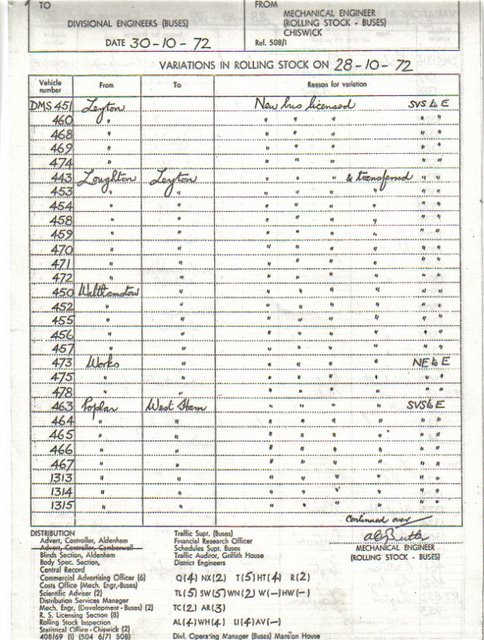 TO
FROM
DIVISIONAL ENGINEERS (BUSES)
MECHANICAL ENGINEER
(ROLLING STOCK - BUSES)
CHISWICK
DATE 30-10-72
Ref. 508/1
VARIATIONS IN ROLLING STOCK ON 28-10-72
Vehicle number From To Reason for variation
DMS.451 Leyton New bus licensed SVS to E
460 " " " " " "
468 " " " " " "
469 " " " " " "
474 " " " " " "
443 Loughton Leyton " " " & transferred " "
453 " " " " " " " "
454 " " " " " " " "
458 " " " " " " " "
459 " " " " " " " "
470 " " " " " " " "
471 " " " " " " " "
472 " " " " " " " "
450 Walthamstow " " " " " " "
452 " " " " " " " "
455 " " " " " " " "
456 " " " " " " " "
457 " " " " " " " "
473 Works " " " " " NE to E
475 " " " " " " " "
478 " " " " " " " "
463 Poplar West Ham " " " " SVS to E
464 " " " " " " " "
465 " " " " " " " "
466 " " " " " " " "
467 " " " " " " " "
1313 " " " " " " " "
1314 " " " " " " " "
1315 " " " " " " " "
Continued over
MECHANICAL ENGINEER
(ROLLING STOCK - BUSES)
DISTRIBUTION
Advert, Controller, Aldenham
Advert, Controller, Camberwell
Blinds Section, Aldenham
Body Spec, Section,
Central Record
Commercial Advertising Officer (6)
Costs Office (Mech. Engr,-Buses)
Scientific Adviser (2)
Distribution Services Manager
Mech. Engr, (Development - Buses) (2)
R. S. Licensing Section (8)
Rolling Stock Inspection
Statistical Office - Chiswick (2)
408/69 (I) (504 6/71 508)
Traffic Supt. (Buses)
Financial Research Officer
Schedules Supt. Buses
Traffic Auditor, Griffith House
District Engineers
Q(4) NX(2) T(5) HT(4) R(2)
TL(5) SW(5) WN(2) W(-) HW(-)
TC(2) AR(3)
AL(4) WH(4) U(4) AV(-)
Divl. Operating Manager (Buses) Manson House